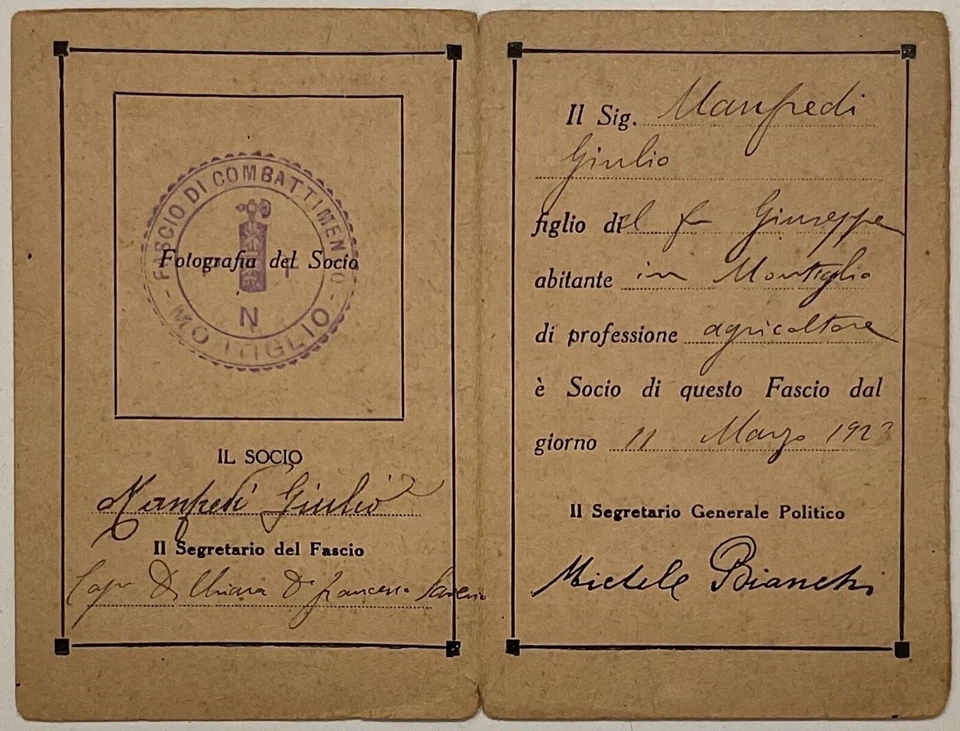 FASCIO DI COMBATTIMENTO
Fotografia del Socio
N
- MO TIGLIO -
IL SOCIO
Manfredi Giulio
Il Segretario del Fascio
Cap. Di Chiara Dr Francesco Saverio
Il Sig. Manfredi
Giulio
figlio di Giuseppe
abitante in Montiglio
di professione agricoltore
è Socio di questo Fascio dal
giorno 11 Marzo 192
Il Segretario Generale Politico
Michele Bianchi